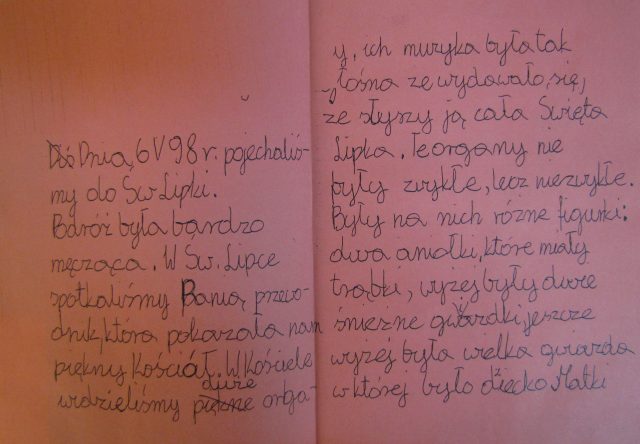 Dnia 6 V 98 r. pojechaliś-
my do Św. Lipki.
Podróż była bardzo
męcząca. W Św. Lipce
spotkaliśmy Panią przewo-
dnik, która pokazała nam
piękny Kościół. W Kościele
widzieliśmy duże orga-
y, ich muzyka była tak
głośna ze wydawało, się,
że słyszy ją cała Święta
Lipka. Te organy nie
były zwykłe, lecz niezwykłe.
Były na nich różne figurki:
dwa aniołki, które miały
trąbki, wyżej były dwie
śnieżne gwiazdki jeszcze
wyżej była wielka gwiazda
w której było dziecko Matki